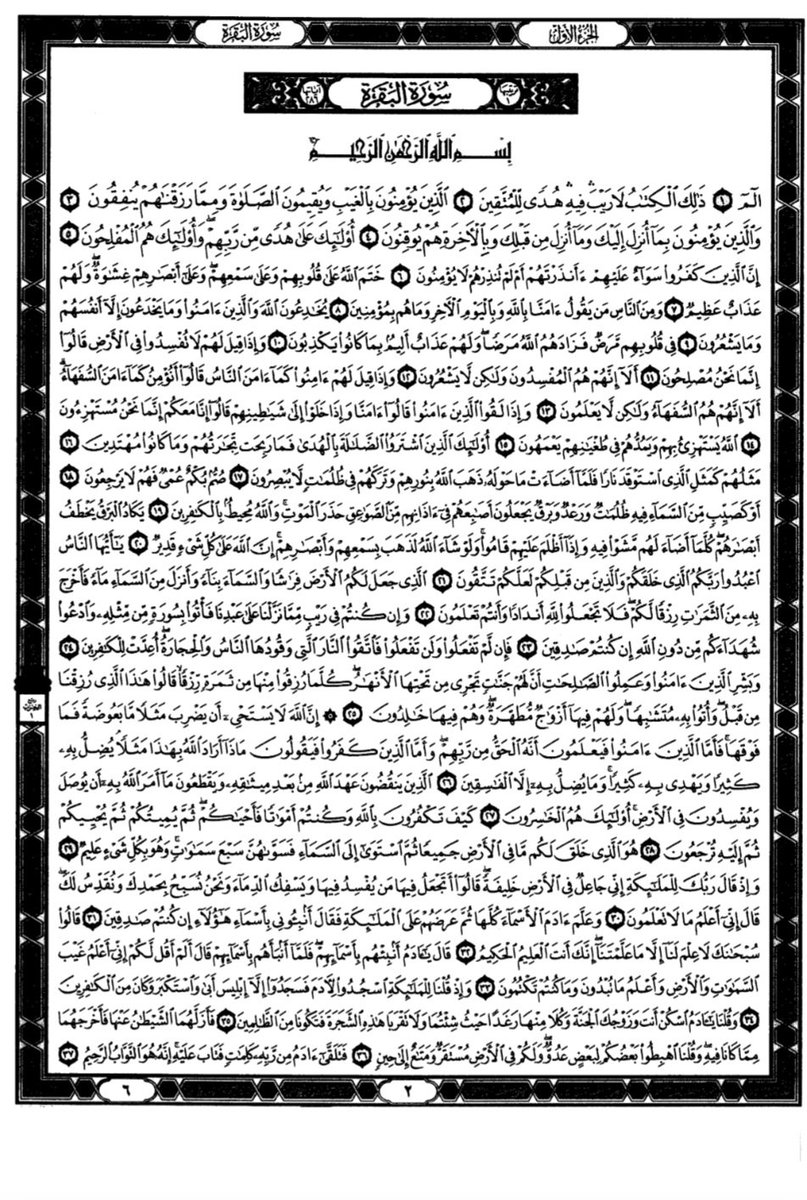 الجزء الأول
سورة البقرة
رقمها ١ سورة البقرة آياتها ٢٨٦
بِسْمِ اللَّهِ الرَّحْمَٰنِ الرَّحِيمِ
الٓمٓ ١ ذَٰلِكَ الْكِتَابُ لَا رَيْبَ ۛ فِيهِ ۛ هُدًى لِّلْمُتَّقِينَ ٢ الَّذِينَ يُؤْمِنُونَ بِالْغَيْبِ وَيُقِيمُونَ الصَّلَوٰةَ وَمِمَّا رَزَقْنَاهُمْ يُنفِقُونَ ٣
وَالَّذِينَ يُؤْمِنُونَ بِمَا أُنزِلَ إِلَيْكَ وَمَا أُنزِلَ مِن قَبْلِكَ وَبِالْآخِرَةِ هُمْ يُوقِنُونَ ٤ أُوْلَٰئِكَ عَلَىٰ هُدًى مِّن رَّبِّهِمْ ۖ وَأُوْلَٰئِكَ هُمُ الْمُفْلِحُونَ ٥
إِنَّ الَّذِينَ كَفَرُوا سَوَآءٌ عَلَيْهِمْ ءَأَنذَرْتَهُمْ أَمْ لَمْ تُنذِرْهُمْ لَا يُؤْمِنُونَ ٦ خَتَمَ اللَّهُ عَلَىٰ قُلُوبِهِمْ وَعَلَىٰ سَمْعِهِمْ ۖ وَعَلَىٰ أَبْصَارِهِمْ غِشَاوَةٌ ۖ وَلَهُمْ
عَذَابٌ عَظِيمٌ ٧ وَمِنَ النَّاسِ مَن يَقُولُ ءَامَنَّا بِاللَّهِ وَبِالْيَوْمِ الْآخِرِ وَمَا هُم بِمُؤْمِنِينَ ٨ يُخَادِعُونَ اللَّهَ وَالَّذِينَ ءَامَنُوا وَمَا يَخْدَعُونَ إِلَّا أَنفُسَهُمْ
وَمَا يَشْعُرُونَ ٩ فِي قُلُوبِهِم مَّرَضٌ فَزَادَهُمُ اللَّهُ مَرَضًا ۖ وَلَهُمْ عَذَابٌ أَلِيمٌ بِمَا كَانُوا يَكْذِبُونَ ١٠ وَإِذَا قِيلَ لَهُمْ لَا تُفْسِدُوا فِي الْأَرْضِ قَالُوا
إِنَّمَا نَحْنُ مُصْلِحُونَ ١١ أَلَا إِنَّهُمْ هُمُ الْمُفْسِدُونَ وَلَٰكِن لَّا يَشْعُرُونَ ١٢ وَإِذَا قِيلَ لَهُمْ ءَامِنُوا كَمَا ءَامَنَ النَّاسُ قَالُوا أَنُؤْمِنُ كَمَا ءَامَنَ السُّفَهَاءُ ۗ
أَلَا إِنَّهُمْ هُمُ السُّفَهَاءُ وَلَٰكِن لَّا يَعْلَمُونَ ١٣ وَإِذَا لَقُوا الَّذِينَ ءَامَنُوا قَالُوا ءَامَنَّا وَإِذَا خَلَوْا إِلَىٰ شَيَاطِينِهِمْ قَالُوا إِنَّا مَعَكُمْ إِنَّمَا نَحْنُ مُسْتَهْزِءُونَ
١٤ اللَّهُ يَسْتَهْزِئُ بِهِمْ وَيَمُدُّهُمْ فِي طُغْيَانِهِمْ يَعْمَهُونَ ١٥ أُوْلَٰئِكَ الَّذِينَ اشْتَرَوُا الضَّلَالَةَ بِالْهُدَىٰ فَمَا رَبِحَت تِّجَارَتُهُمْ وَمَا كَانُوا مُهْتَدِينَ ١٦
مَثَلُهُمْ كَمَثَلِ الَّذِي اسْتَوْقَدَ نَارًا فَلَمَّا أَضَاءَتْ مَا حَوْلَهُ ذَهَبَ اللَّهُ بِنُورِهِمْ وَتَرَكَهُمْ فِي ظُلُمَاتٍ لَّا يُبْصِرُونَ ١٧ صُمٌّ بُكْمٌ عُمْيٌ فَهُمْ لَا يَرْجِعُونَ ١٨
أَوْ كَصَيِّبٍ مِّنَ السَّمَاءِ فِيهِ ظُلُمَاتٌ وَرَعْدٌ وَبَرْقٌ يَجْعَلُونَ أَصَابِعَهُمْ فِي ءَاذَانِهِم مِّنَ الصَّوَاعِقِ حَذَرَ الْمَوْتِ ۚ وَاللَّهُ مُحِيطٌ بِالْكَافِرِينَ ١٩ يَكَادُ الْبَرْقُ يَخْطَفُ
أَبْصَارَهُمْ ۖ كُلَّمَا أَضَاءَ لَهُم مَّشَوْا فِيهِ وَإِذَا أَظْلَمَ عَلَيْهِمْ قَامُوا ۚ وَلَوْ شَاءَ اللَّهُ لَذَهَبَ بِسَمْعِهِمْ وَأَبْصَارِهِمْ ۚ إِنَّ اللَّهَ عَلَىٰ كُلِّ شَيْءٍ قَدِيرٌ ٢٠ يَا أَيُّهَا النَّاسُ
اعْبُدُوا رَبَّكُمُ الَّذِي خَلَقَكُمْ وَالَّذِينَ مِن قَبْلِكُمْ لَعَلَّكُمْ تَتَّقُونَ ٢١ الَّذِي جَعَلَ لَكُمُ الْأَرْضَ فِرَاشًا وَالسَّمَاءَ بِنَاءً وَأَنزَلَ مِنَ السَّمَاءِ مَاءً فَأَخْرَجَ
بِهِ مِنَ الثَّمَرَاتِ رِزْقًا لَّكُمْ ۖ فَلَا تَجْعَلُوا لِلَّهِ أَندَادًا وَأَنتُمْ تَعْلَمُونَ ٢٢ وَإِن كُنتُمْ فِي رَيْبٍ مِّمَّا نَزَّلْنَا عَلَىٰ عَبْدِنَا فَأْتُوا بِسُورَةٍ مِّن مِّثْلِهِ وَادْعُوا
شُهَدَاءَكُم مِّن دُونِ اللَّهِ إِن كُنتُمْ صَادِقِينَ ٢٣ فَإِن لَّمْ تَفْعَلُوا وَلَن تَفْعَلُوا فَاتَّقُوا النَّارَ الَّتِي وَقُودُهَا النَّاسُ وَالْحِجَارَةُ ۖ أُعِدَّتْ لِلْكَافِرِينَ ٢٤
وَبَشِّرِ الَّذِينَ ءَامَنُوا وَعَمِلُوا الصَّالِحَاتِ أَنَّ لَهُمْ جَنَّاتٍ تَجْرِي مِن تَحْتِهَا الْأَنْهَارُ ۖ كُلَّمَا رُزِقُوا مِنْهَا مِن ثَمَرَةٍ رِّزْقًا ۙ قَالُوا هَٰذَا الَّذِي رُزِقْنَا
مِن قَبْلُ ۖ وَأُتُوا بِهِ مُتَشَابِهًا ۖ وَلَهُمْ فِيهَا أَزْوَاجٌ مُّطَهَّرَةٌ ۖ وَهُمْ فِيهَا خَالِدُونَ ٢٥ ۞ إِنَّ اللَّهَ لَا يَسْتَحْيِي أَن يَضْرِبَ مَثَلًا مَّا بَعُوضَةً فَمَا
فَوْقَهَا ۚ فَأَمَّا الَّذِينَ ءَامَنُوا فَيَعْلَمُونَ أَنَّهُ الْحَقُّ مِن رَّبِّهِمْ ۖ وَأَمَّا الَّذِينَ كَفَرُوا فَيَقُولُونَ مَاذَا أَرَادَ اللَّهُ بِهَٰذَا مَثَلًا ۘ يُضِلُّ بِهِ
كَثِيرًا وَيَهْدِي بِهِ كَثِيرًا ۚ وَمَا يُضِلُّ بِهِ إِلَّا الْفَاسِقِينَ ٢٦ الَّذِينَ يَنقُضُونَ عَهْدَ اللَّهِ مِن بَعْدِ مِيثَاقِهِ وَيَقْطَعُونَ مَا أَمَرَ اللَّهُ بِهِ أَن يُوصَلَ
وَيُفْسِدُونَ فِي الْأَرْضِ ۚ أُوْلَٰئِكَ هُمُ الْخَاسِرُونَ ٢٧ كَيْفَ تَكْفُرُونَ بِاللَّهِ وَكُنتُمْ أَمْوَاتًا فَأَحْيَاكُمْ ۖ ثُمَّ يُمِيتُكُمْ ثُمَّ يُحْيِيكُمْ
ثُمَّ إِلَيْهِ تُرْجَعُونَ ٢٨ هُوَ الَّذِي خَلَقَ لَكُم مَّا فِي الْأَرْضِ جَمِيعًا ثُمَّ اسْتَوَىٰ إِلَى السَّمَاءِ فَسَوَّاهُنَّ سَبْعَ سَمَاوَاتٍ ۚ وَهُوَ بِكُلِّ شَيْءٍ عَلِيمٌ ٢٩
وَإِذْ قَالَ رَبُّكَ لِلْمَلَائِكَةِ إِنِّي جَاعِلٌ فِي الْأَرْضِ خَلِيفَةً ۖ قَالُوا أَتَجْعَلُ فِيهَا مَن يُفْسِدُ فِيهَا وَيَسْفِكُ الدِّمَاءَ وَنَحْنُ نُسَبِّحُ بِحَمْدِكَ وَنُقَدِّسُ لَكَ ۖ
قَالَ إِنِّي أَعْلَمُ مَا لَا تَعْلَمُونَ ٣٠ وَعَلَّمَ ءَادَمَ الْأَسْمَاءَ كُلَّهَا ثُمَّ عَرَضَهُمْ عَلَى الْمَلَائِكَةِ فَقَالَ أَنبِئُونِي بِأَسْمَاءِ هَٰؤُلَاءِ إِن كُنتُمْ صَادِقِينَ ٣١ قَالُوا
سُبْحَانَكَ لَا عِلْمَ لَنَا إِلَّا مَا عَلَّمْتَنَا ۖ إِنَّكَ أَنتَ الْعَلِيمُ الْحَكِيمُ ٣٢ قَالَ يَا آدَمُ أَنبِئْهُم بِأَسْمَائِهِمْ ۖ فَلَمَّا أَنبَأَهُم بِأَسْمَائِهِمْ قَالَ أَلَمْ أَقُل لَّكُمْ إِنِّي أَعْلَمُ غَيْبَ
السَّمَاوَاتِ وَالْأَرْضِ وَأَعْلَمُ مَا تُبْدُونَ وَمَا كُنتُمْ تَكْتُمُونَ ٣٣ وَإِذْ قُلْنَا لِلْمَلَائِكَةِ اسْجُدُوا لِآدَمَ فَسَجَدُوا إِلَّا إِبْلِيسَ أَبَىٰ وَاسْتَكْبَرَ وَكَانَ مِنَ الْكَافِرِينَ
٣٤ وَقُلْنَا يَا آدَمُ اسْكُنْ أَنتَ وَزَوْجُكَ الْجَنَّةَ وَكُلَا مِنْهَا رَغَدًا حَيْثُ شِئْتُمَا وَلَا تَقْرَبَا هَٰذِهِ الشَّجَرَةَ فَتَكُونَا مِنَ الظَّالِمِينَ ٣٥ فَأَزَلَّهُمَا الشَّيْطَانُ عَنْهَا فَأَخْرَجَهُمَا
مِمَّا كَانَا فِيهِ ۖ وَقُلْنَا اهْبِطُوا بَعْضُكُمْ لِبَعْضٍ عَدُوٌّ ۖ وَلَكُمْ فِي الْأَرْضِ مُسْتَقَرٌّ وَمَتَاعٌ إِلَىٰ حِينٍ ٣٦ فَتَلَقَّىٰ ءَادَمُ مِن رَّبِّهِ كَلِمَاتٍ فَتَابَ عَلَيْهِ ۚ إِنَّهُ هُوَ التَّوَّابُ الرَّحِيمُ ٣٧
٢
٦